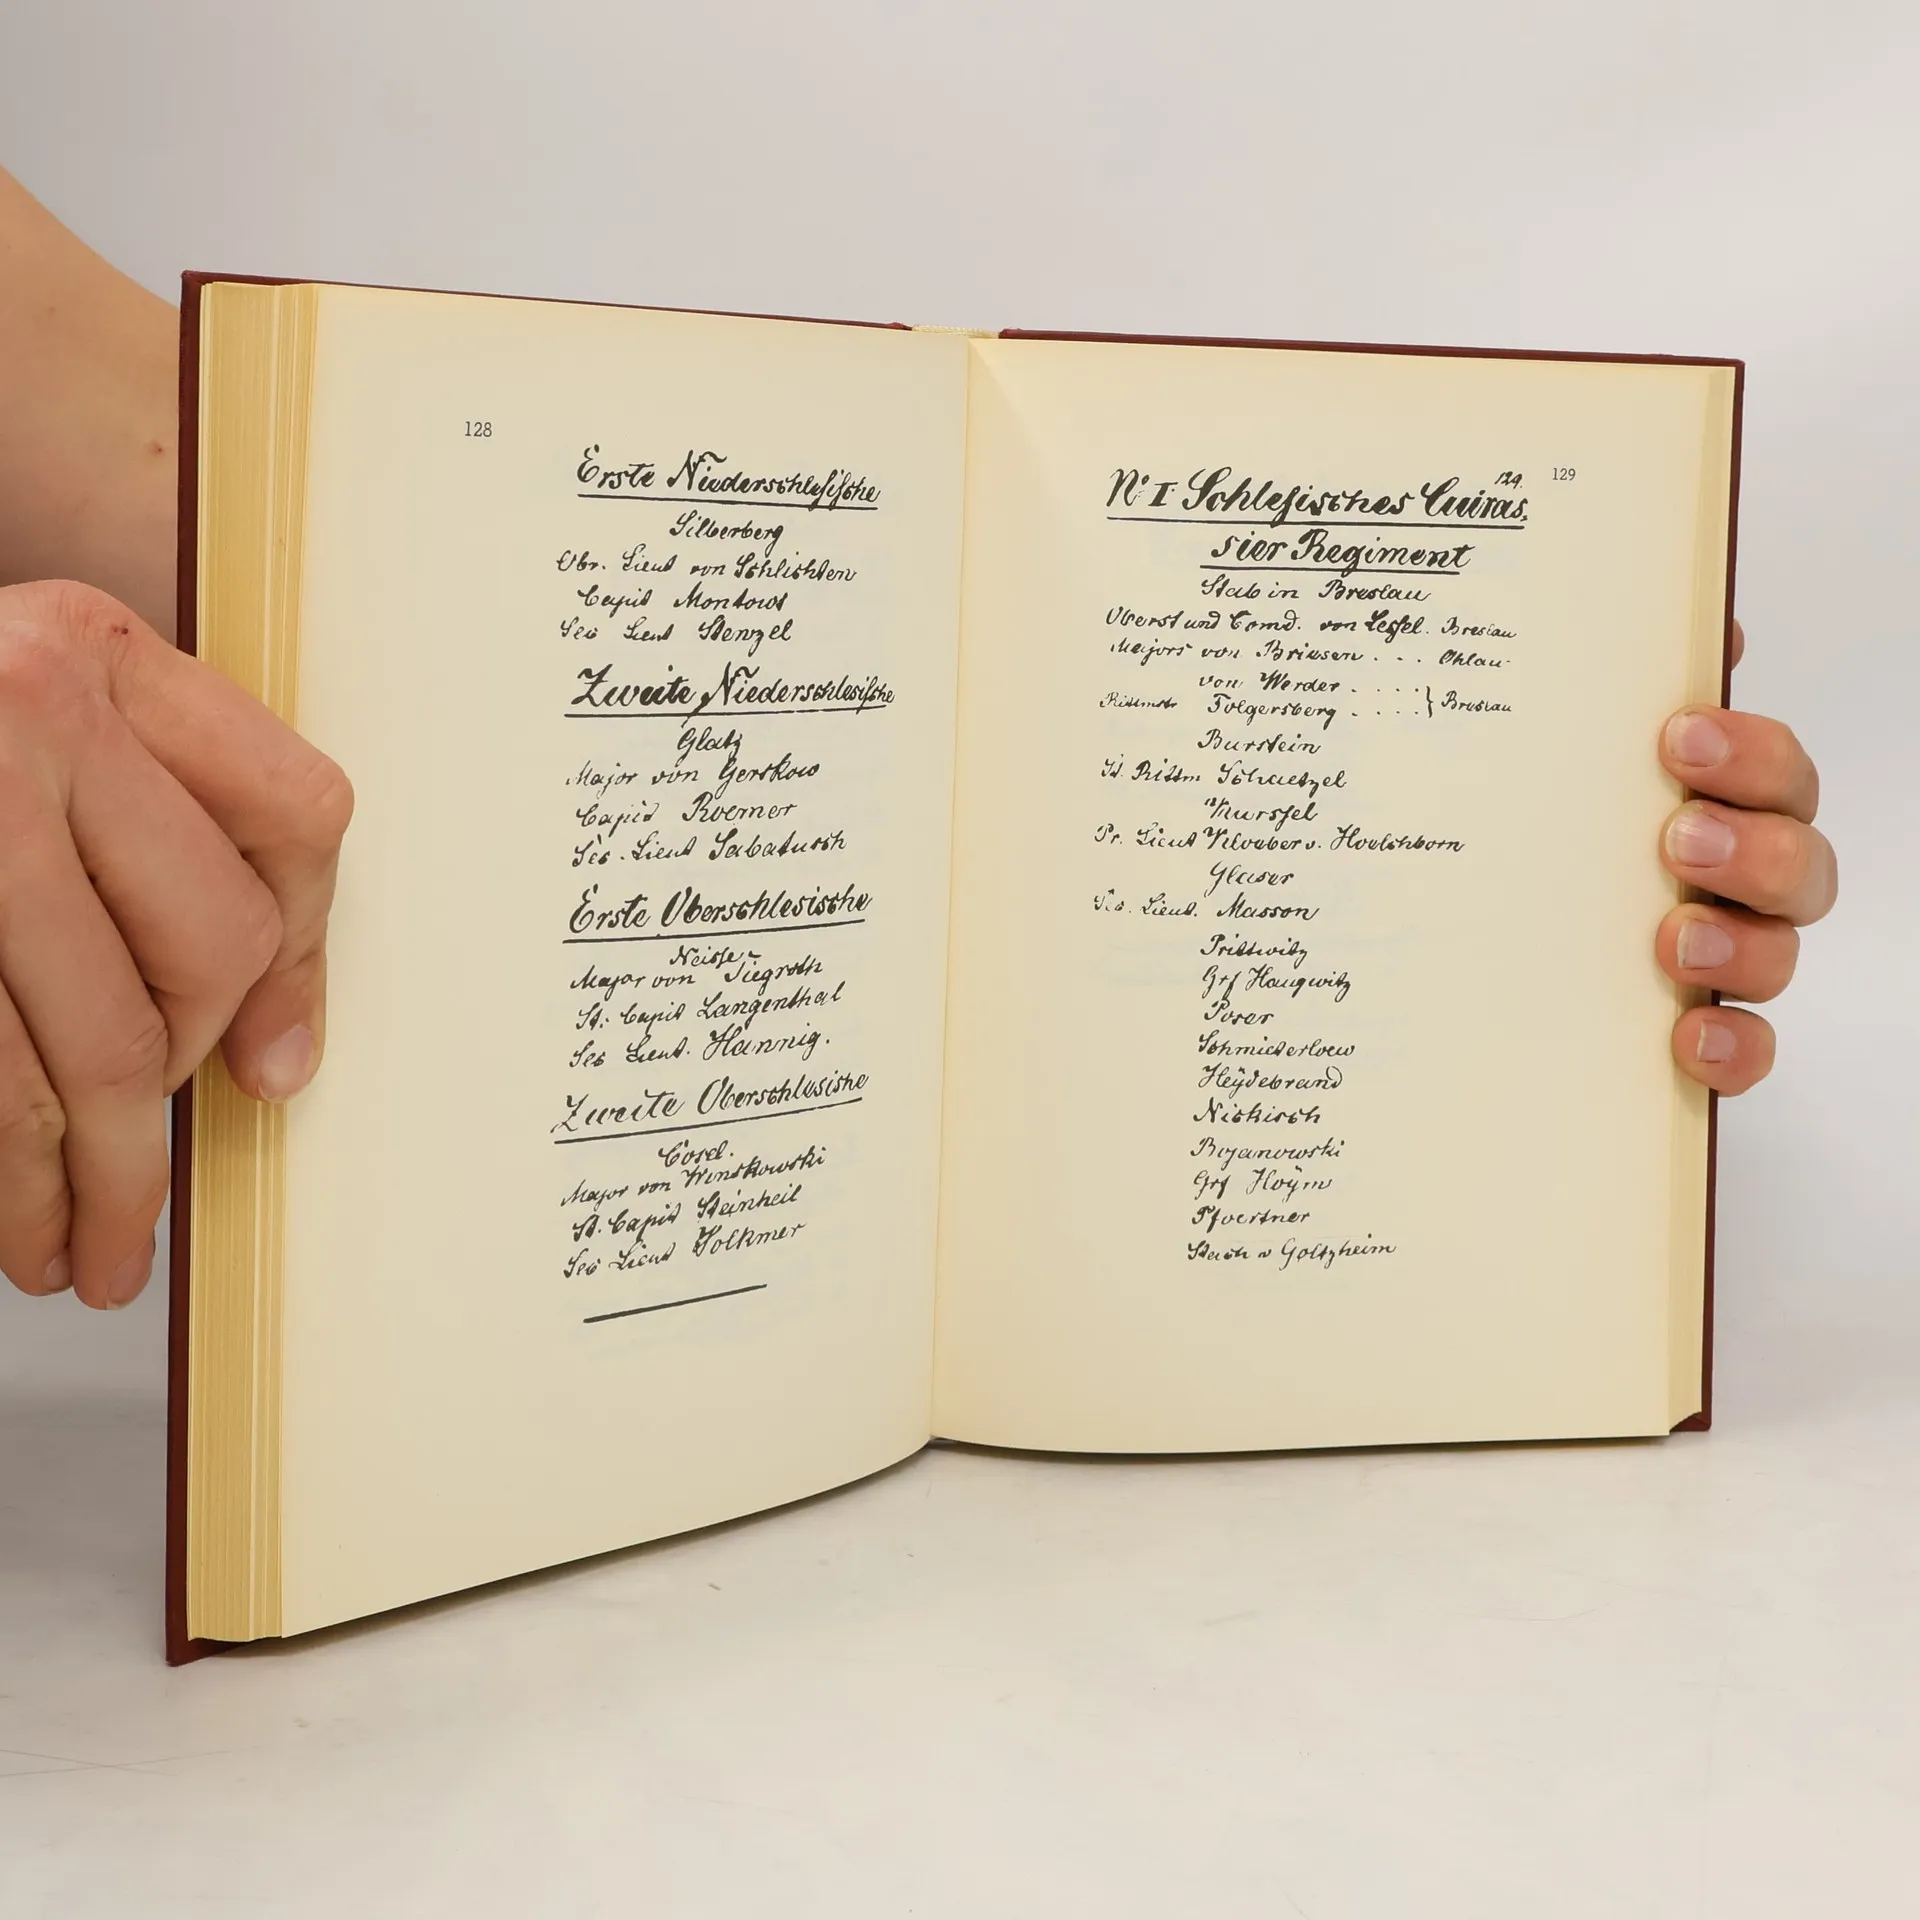 128
Erste Niederschlesische
Silberberg
Obr. Lieut von Schlichten
Capit Montowt
Sec Lieut Stenzel
Zweite Niederschlesische
Glatz
Major von Gerskow
Capit Roemer
Sec. Lieut Sabatusch
Erste Oberschlesische
Neisse
Major von Tiegroth
St. Capit Langenthal
Sec Lieut. Hannig.
Zweite Oberschlesische
Cosel.
Major von Winskowski
St. Capit Steinheil
Sec Lieut Volkmer
129
129.
No I Schlesisches Cuiras,
sier Regiment
Stab in Breslau
Oberst und Comd. von Lessel. Breslau
Majors von Briesen . . . Ohlau
von Werder . . . . } Breslau
Rittmstr Folgersberg . . . .
Burstein
St. Rittm Schaetzel
Wurssel
Pr. Lieut Kloeber v. Hoelschborn
Glaser
Sec. Lieut. Masson
Prittwitz
Grf Haugwitz
Poser
Schmiederloew
Heÿdebrand
Nickisch
Bojanowski
Grf Hoÿm
Pfoertner
Stach v Goltzheim